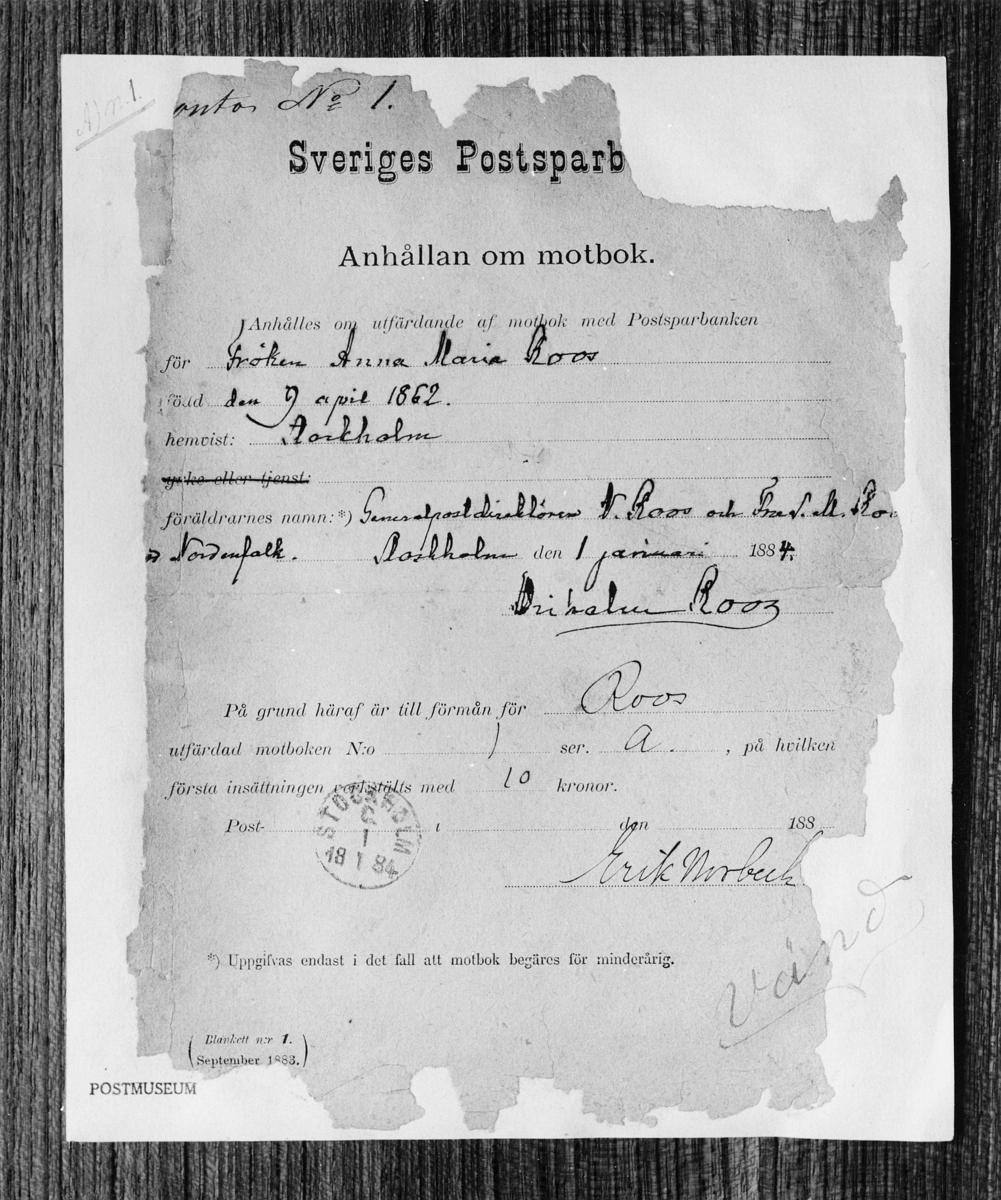 A) n. 1.
ontos No 1.
Sveriges Postsparb
Anhållan om motbok.
Anhålles om utfärdande af motbok med Postsparbanken
för Fröken Anna Maria Roos
född den 9 april 1862.
hemvist: Stockholm
yrke eller tjenst:
föräldrarnes namn:*) Generalpostdirektören W. Roos och Fru
Nordenfalk. Stockholm den 1 januari 1884.
Wilhelm Roos
På grund häraf är till förmån för Roos
utfärdad motboken N:o 1 ser. A. , på hvilken
första insättningen verkstälts med 10 kronor.
Post- i den 188
STOCKHOLM
1
18 1 84
Erik Norbeck
*) Uppgifvas endast i det fall att motbok begäres för minderårig.
Vänd
(Blankett n:r 1.
September 1883.)
POSTMUSEUM